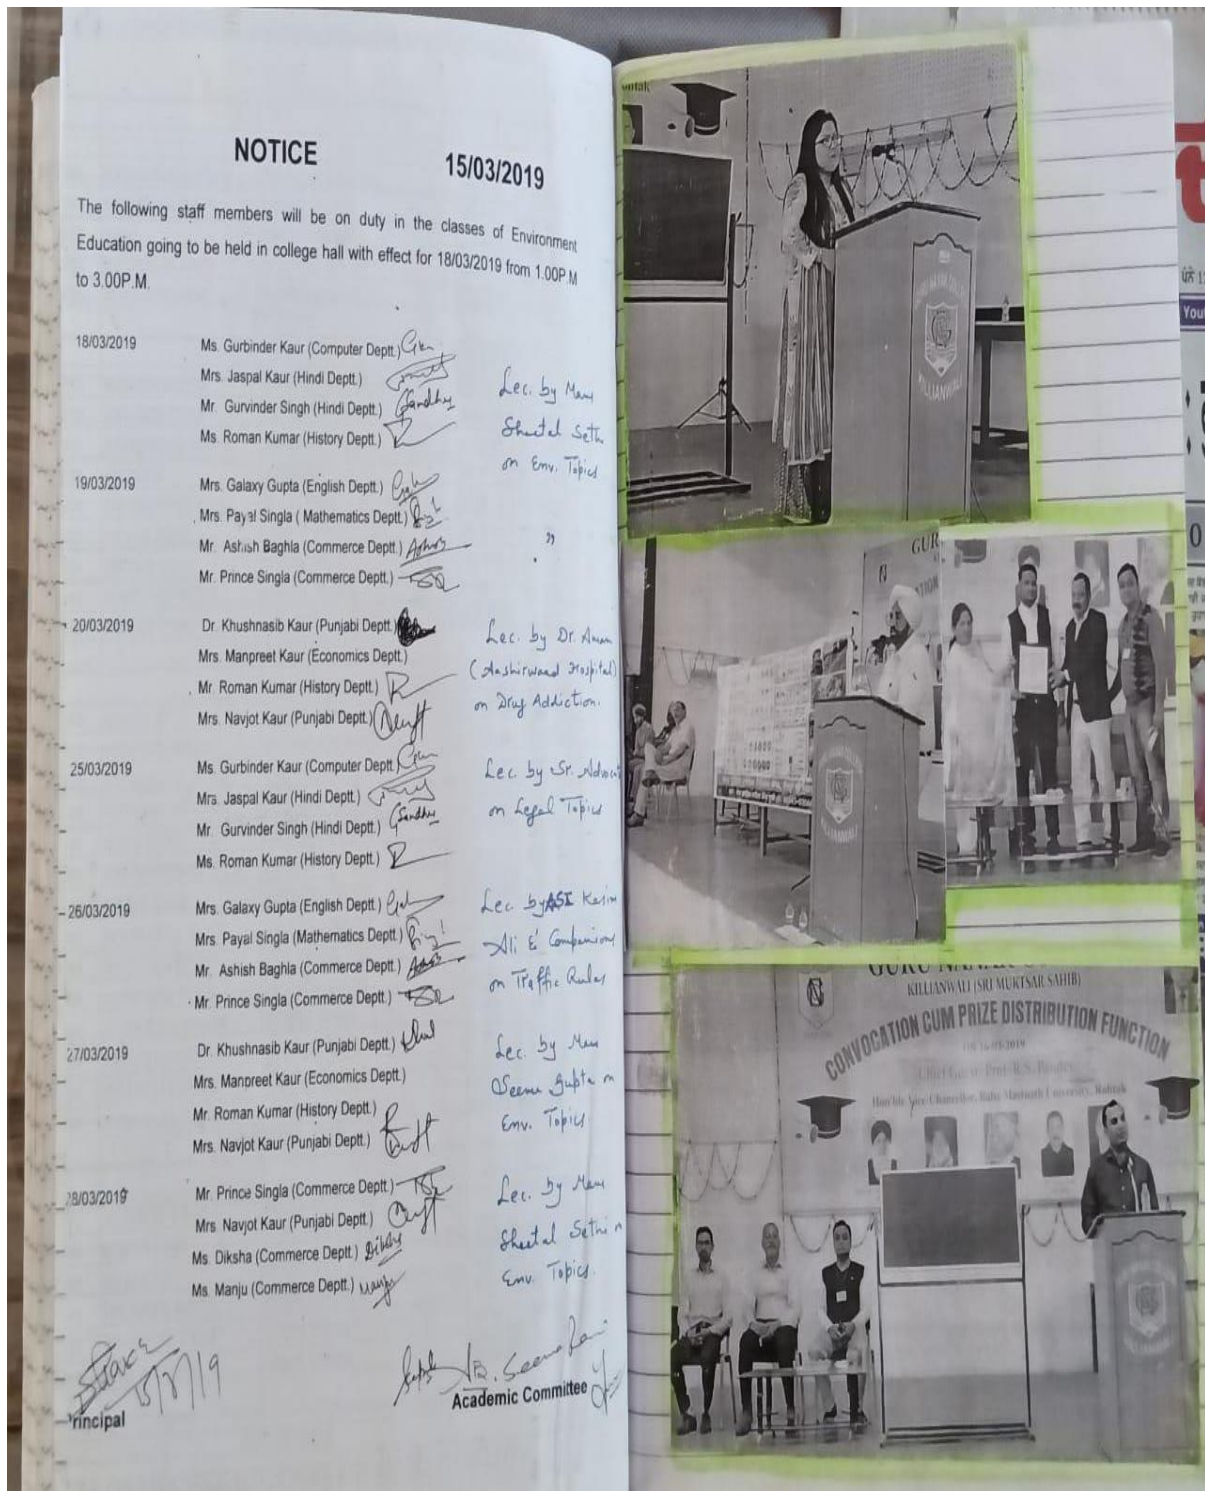 NOTICE
15/03/2019
The following staff members will be on duty in the classes of Environment
Education going to be held in college hall with effect for 18/03/2019 from 1.00P.M
to 3.00P.M.
18/03/2019 Ms. Gurbinder Kaur (Computer Deptt.)
Mrs. Jaspal Kaur (Hindi Deptt.)
Mr. Gurvinder Singh (Hindi Deptt.) Sandhu
Ms. Roman Kumar (History Deptt.)
Lec. by Mam
Sheetal Sethi
on Env. Topics
19/03/2019 Mrs. Galaxy Gupta (English Deptt.)
Mrs. Payal Singla ( Mathematics Deptt.)
Mr. Ashish Baghla (Commerce Deptt.) Ashish
Mr. Prince Singla (Commerce Deptt.)
"
20/03/2019 Dr. Khushnasib Kaur (Punjabi Deptt.)
Mrs. Manpreet Kaur (Economics Deptt.)
Mr. Roman Kumar (History Deptt.)
Mrs. Navjot Kaur (Punjabi Deptt.)
Lec. by Dr. Aman
(Aashirwaad Hospital)
on Drug Addiction.
25/03/2019 Ms. Gurbinder Kaur (Computer Deptt.
Mrs. Jaspal Kaur (Hindi Deptt.)
Mr. Gurvinder Singh (Hindi Deptt.) Sandhu
Ms. Roman Kumar (History Deptt.)
Lec. by Sr. Advocat
on Legal Topics
26/03/2019 Mrs. Galaxy Gupta (English Deptt.)
Mrs. Payal Singla (Mathematics Deptt.)
Mr. Ashish Baghla (Commerce Deptt.)
Mr. Prince Singla (Commerce Deptt.)
Lec. by ASI Kasim
Ali & Companions
on Traffic Rules
27/03/2019 Dr. Khushnasib Kaur (Punjabi Deptt.)
Mrs. Manpreet Kaur (Economics Deptt.)
Mr. Roman Kumar (History Deptt.)
Mrs. Navjot Kaur (Punjabi Deptt.)
Lec. by Mam
Seema Gupta on
Env. Topics
28/03/2019 Mr. Prince Singla (Commerce Deptt.)
Mrs. Navjot Kaur (Punjabi Deptt.)
Ms. Diksha (Commerce Deptt.) Diksha
Ms. Manju (Commerce Deptt.) Manju
Lec. by Mam
Sheetal Sethi
Env. Topics.
15/3/19
Principal
Seema Rani
Academic Committee
KILLIANWALI
GUR
KILLIANWALI
GURU NANAK
KILLIANWALI (SRI MUKTSAR SAHIB)
CONVOCATION CUM PRIZE DISTRIBUTION FUNCTION
Hon'ble Vice-Chancellor, Baba Mastnath University, Rohtak
You